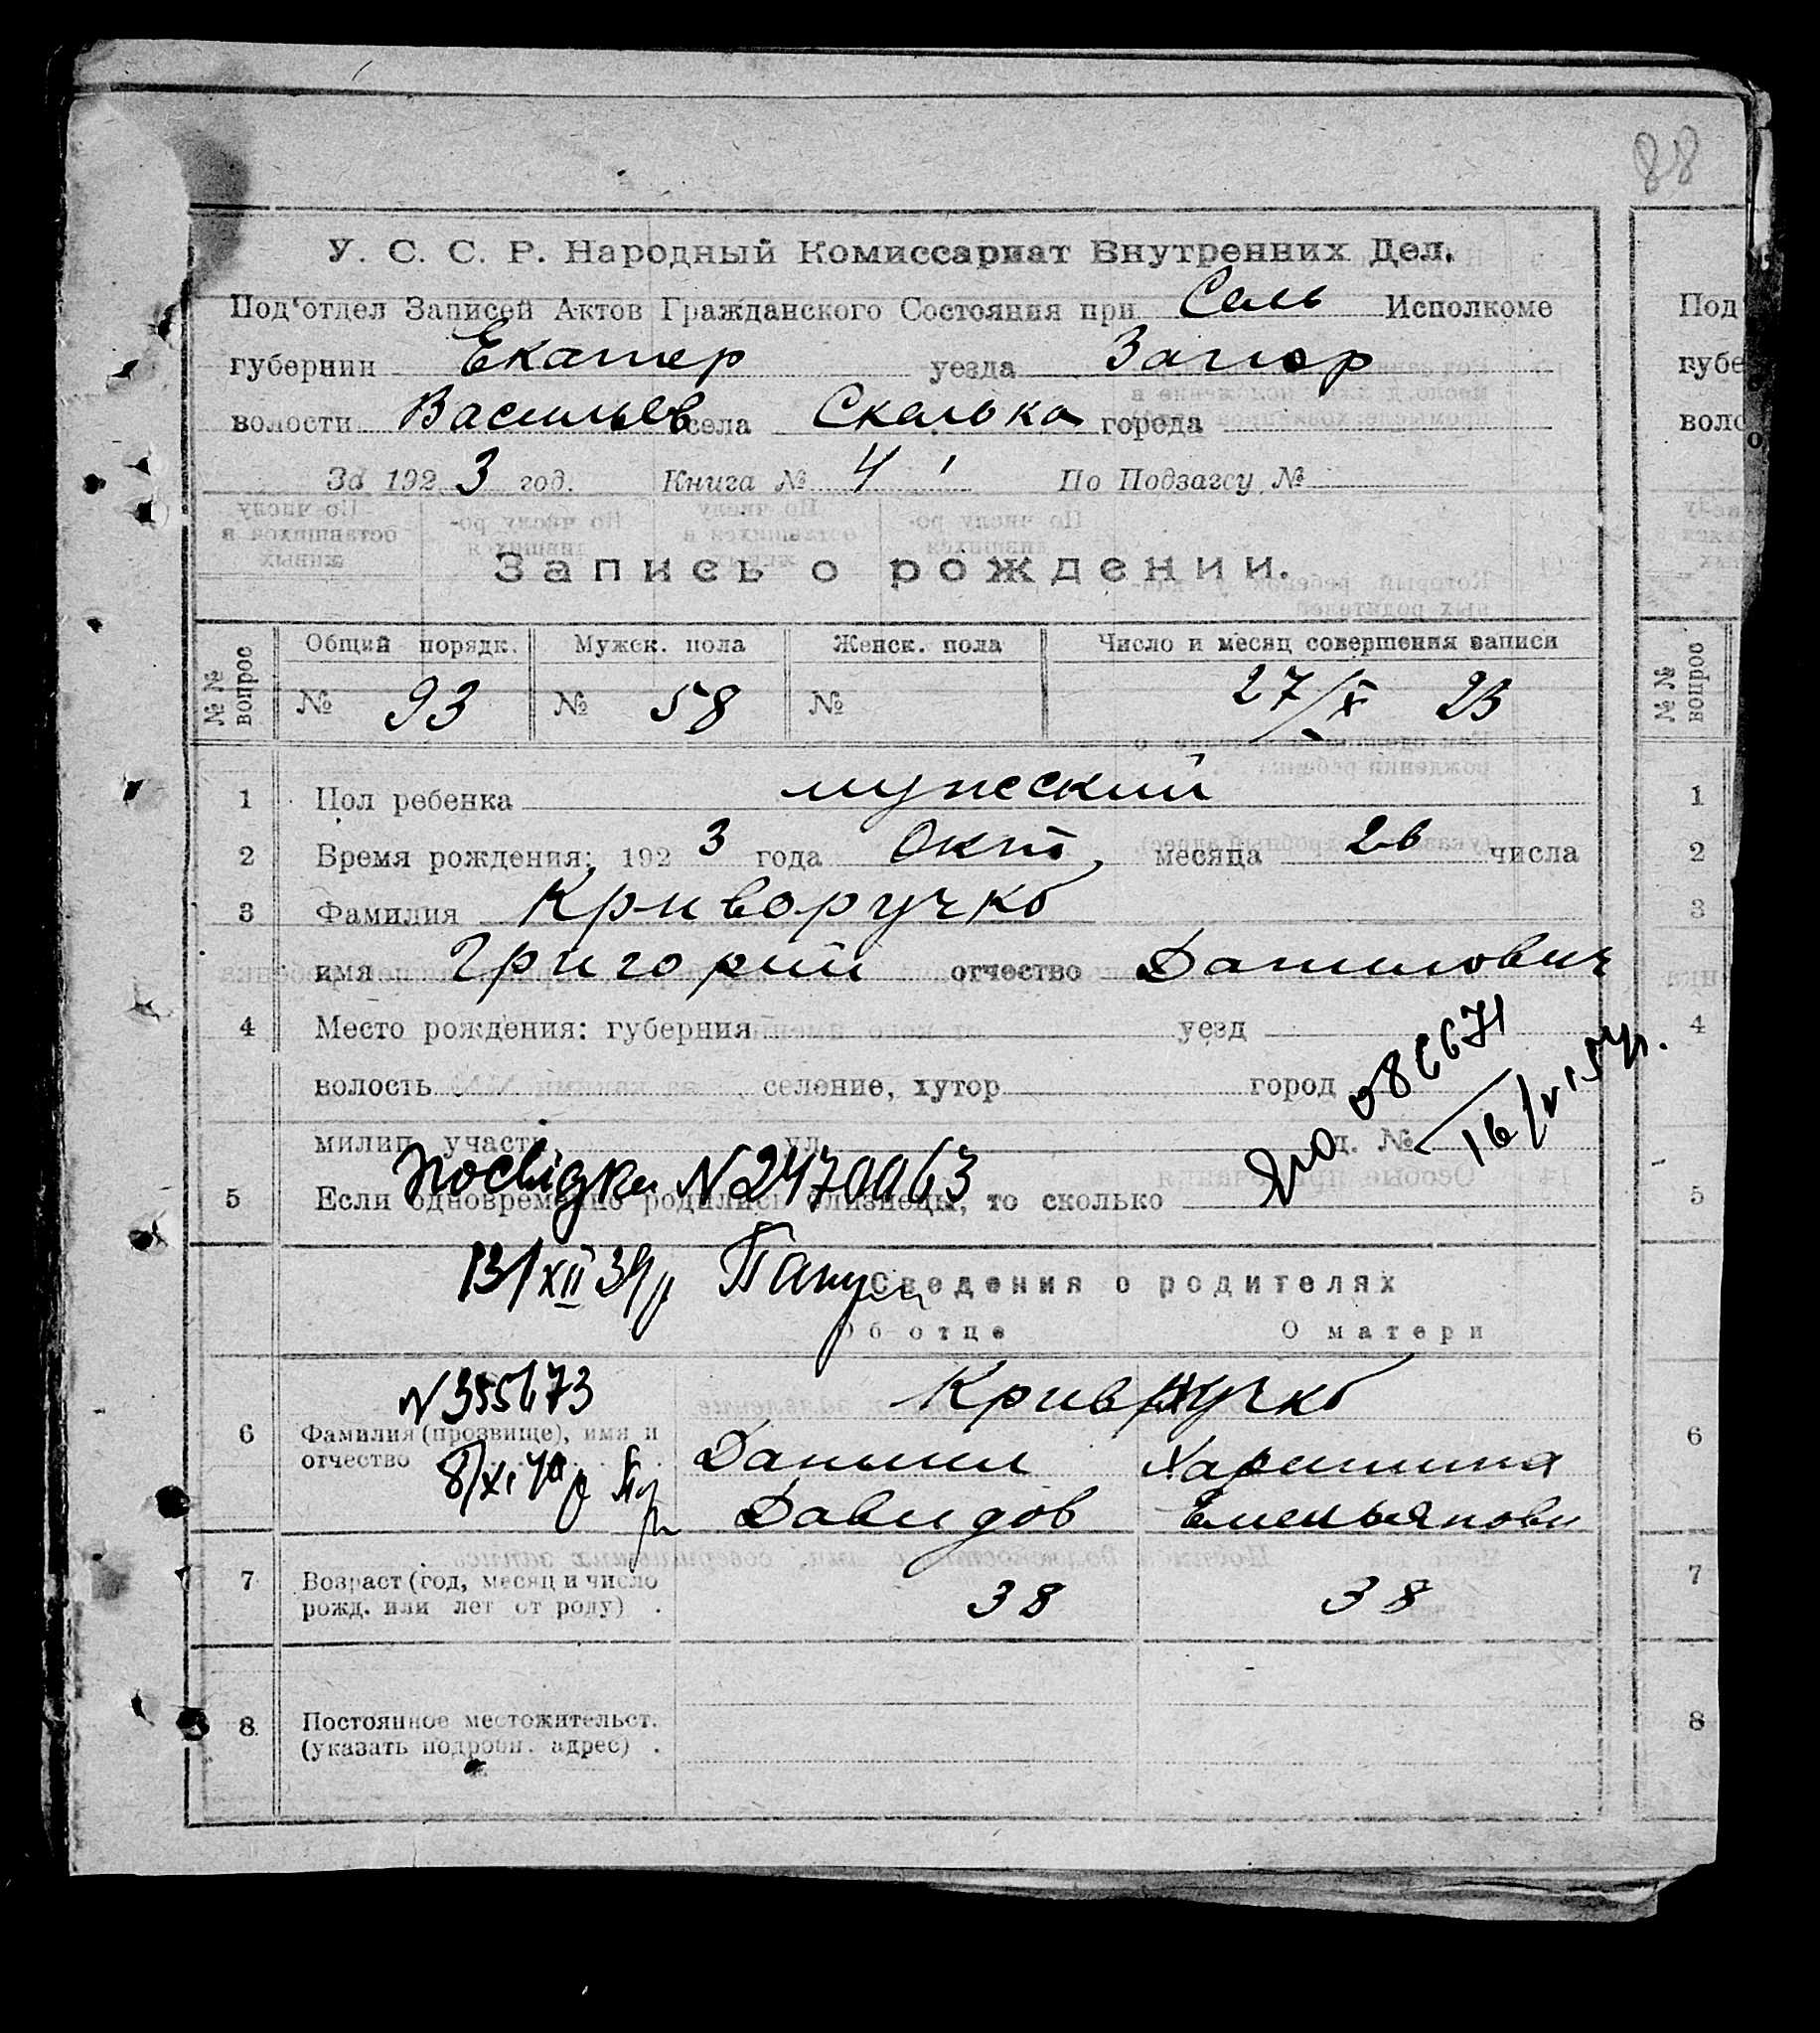 88
У. С. С. Р. Народный Комиссариат Внутренних Дел.
Под'отдел Записей Актов Гражданского Состояния при Сель Исполкоме
губернии Екатер уезда Запор
волости Васильев села Скелька города
За 1923 год. Книга № 4 По Подзагсу №
Запись о рождении.
№№ вопрос Общий порядк. Мужск. пола Женск. пола Число и месяц совершения записи
№ 93 № 58 № 27/X 23
1 Пол ребенка мужеский
2 Время рождения: 1923 года Окт месяца 26 числа
3 Фамилия Криворучко
имя Григорий отчество Данилович
4 Место рождения: губерния уезд
волость селение, хутор город
милиц. участ. ул. д. №
086671
16/VI 54р.
Посвідка N 2470063
5 Если одновременно родились близнецы, то сколько
13/XII 34р
Сведения о родителях
Об отце О матери
N 355673
8/XI 40р
6 Фамилия (прозвище), имя и отчество Криворучко
Даниил Харитина
Давидов Емельяновн
7 Возраст (год, месяц и число рожд. или лет от роду) . 38 38
8. Постоянное местожительст. (указать подробн. адрес) .
Под
губе
воло
№№ вопрос
1
2
3
4
5
6
7
8